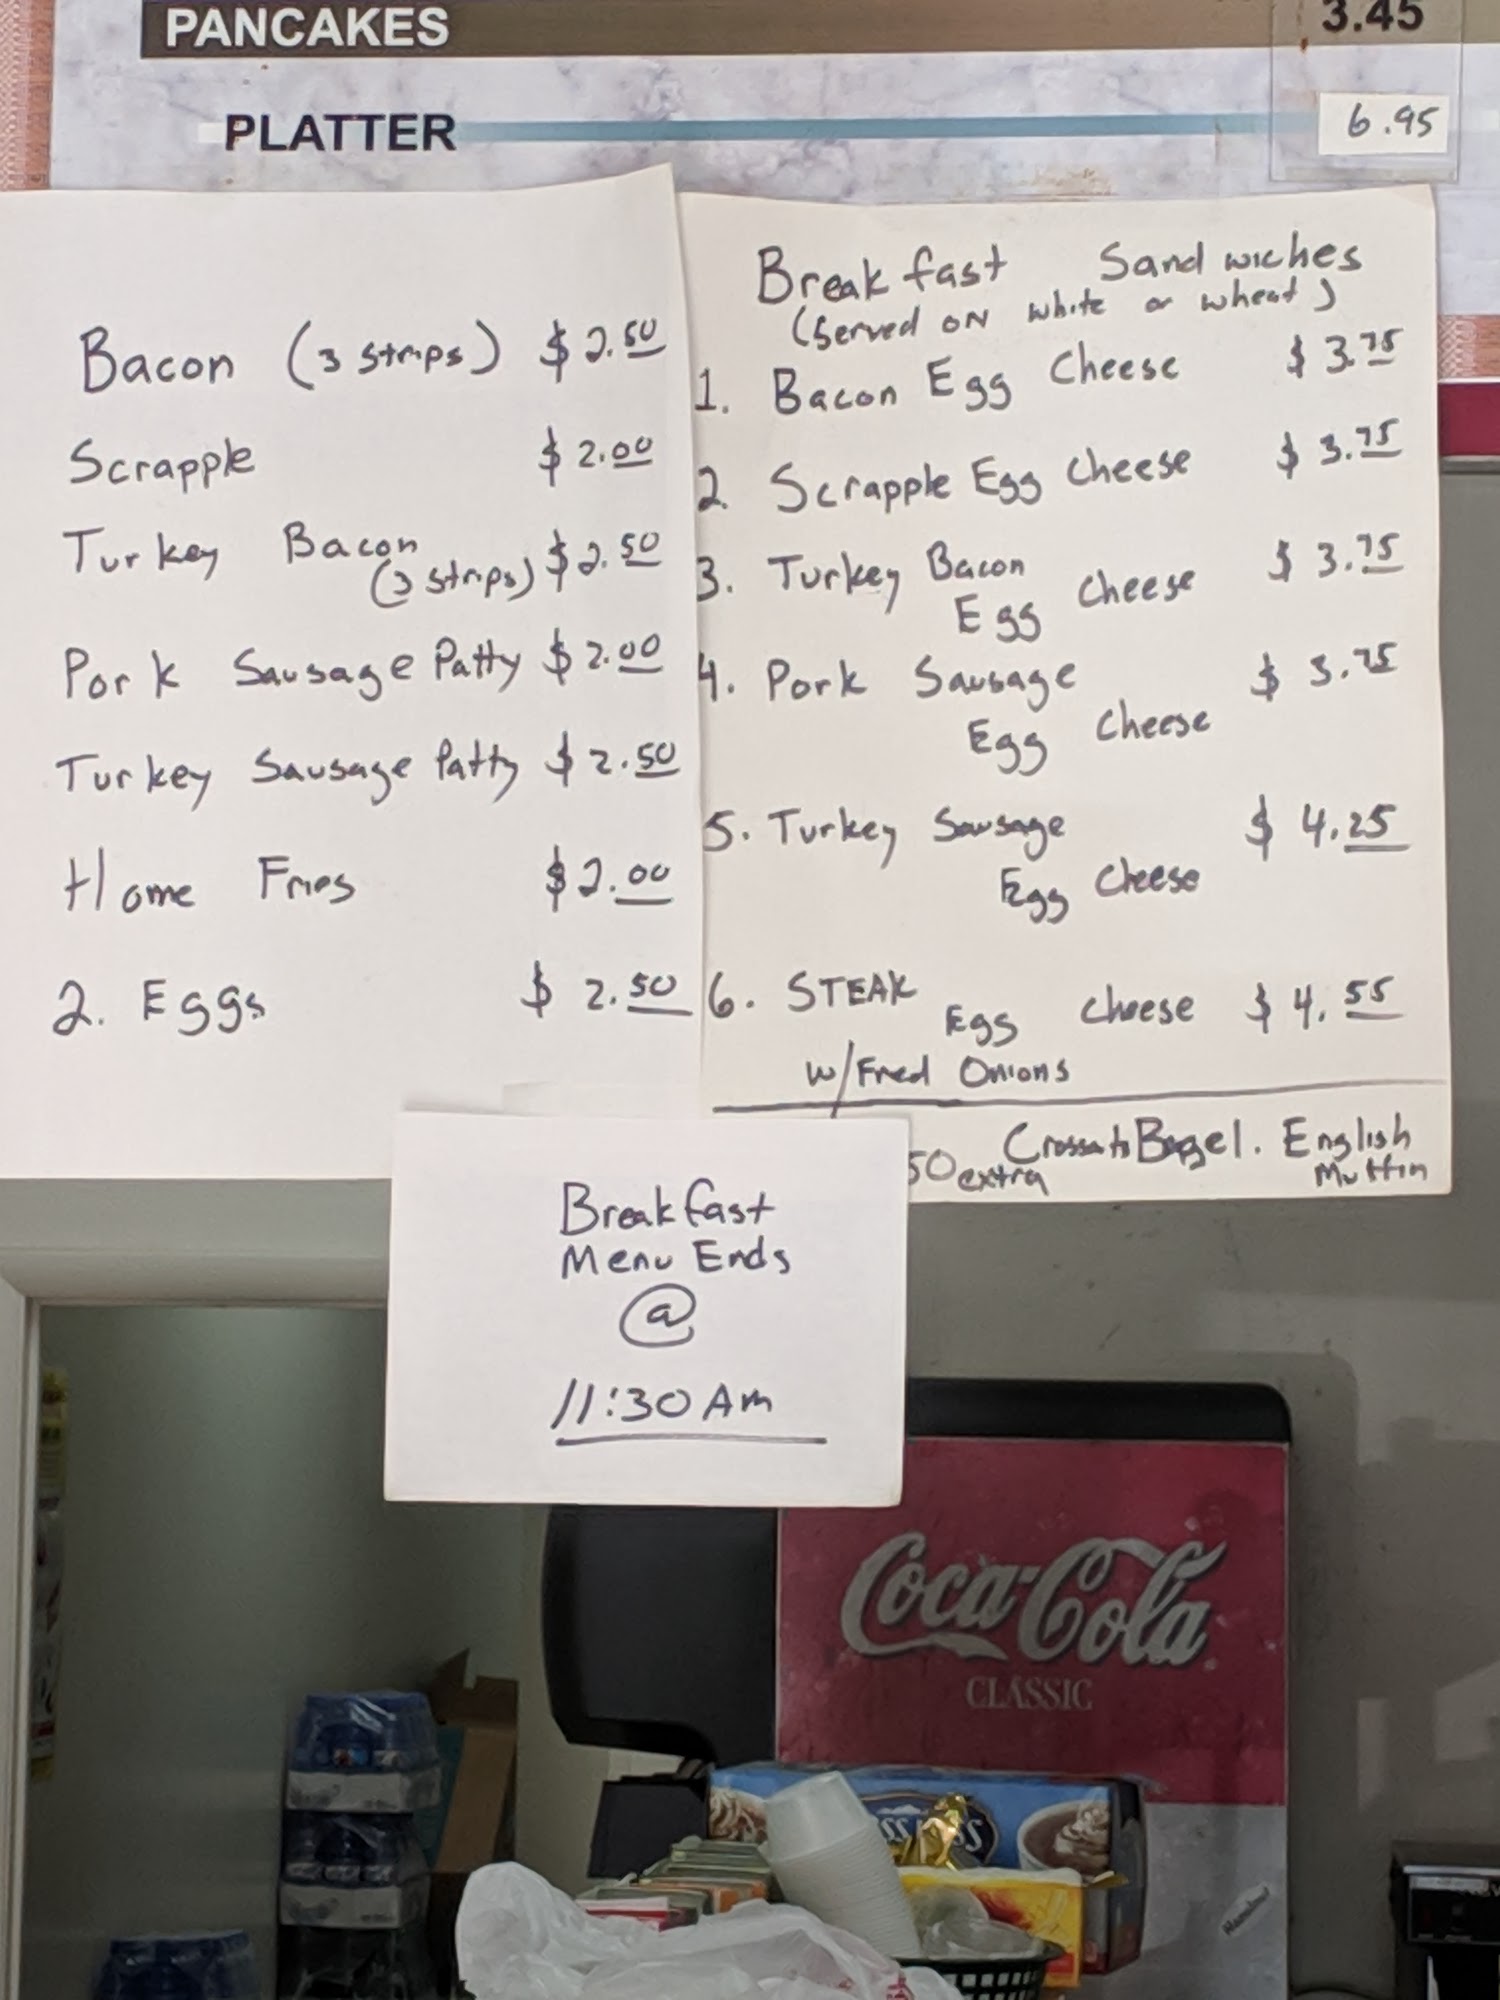 PANCAKES 3.45
PLATTER 6.95
Bacon (3 strips) $2.50
Scrapple $2.00
Turkey Bacon
(3 strips) $2.50
Pork Sausage Patty $2.00
Turkey Sausage Patty $2.50
Home Fries $2.00
2. Eggs $2.50
Breakfast Sandwiches
(Served ON white or wheat)
1. Bacon Egg Cheese $3.75
2. Scrapple Egg Cheese $3.75
3. Turkey Bacon
Egg Cheese $3.75
4. Pork Sausage $3.75
Egg Cheese
5. Turkey Sausage $4.25
Egg Cheese
6. STEAK
Egg Cheese $4.55
w/Fried Onions
50 extra Bagel. English
Muffin
Breakfast
Menu Ends
@
11:30 AM
Coca-Cola
CLASSIC